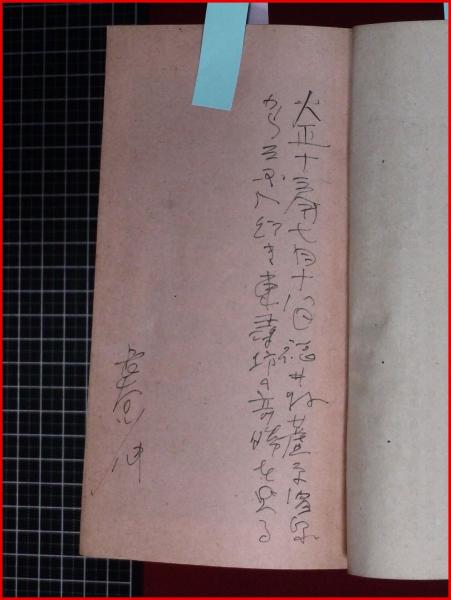 大正十三年七月十八日福井県芦原温泉
から三国へ行き東尋坊の奇勝を見る